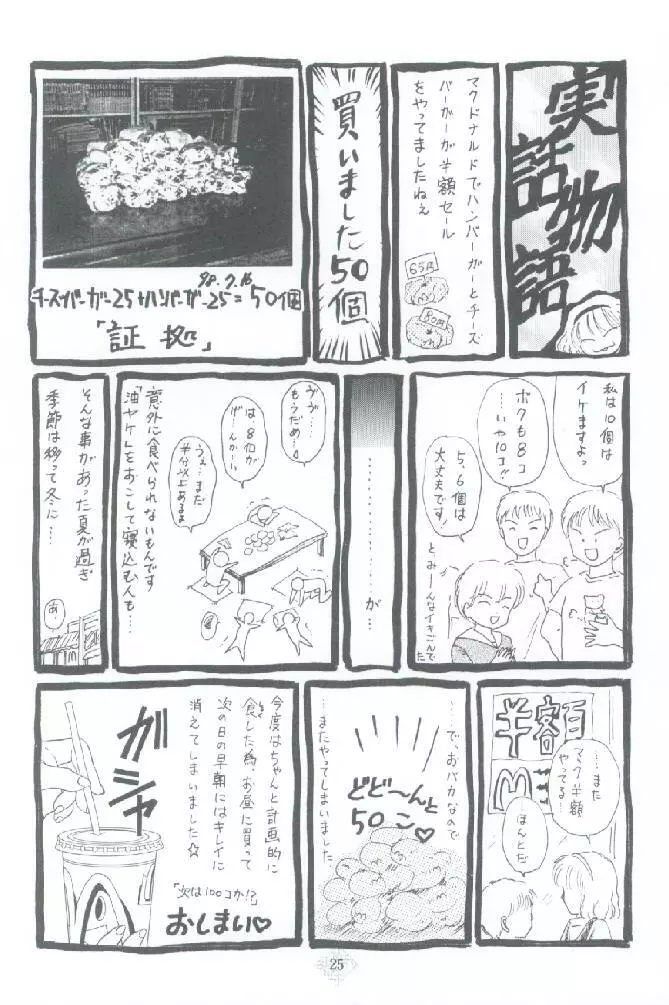 実話物語
マクドナルドでハンバーガーとチーズ
バーガーが半額セール
をやってましたねぇ
65円
80円
買いました50個
98.7.16
チーズバーガー25+ハンバーガー25=50個
「証拠」
私は10個は
イケますよっ
ボクも8コ
…いや10コ!!
5、6個は
大丈夫です!
とみーんなイキごんでた
…………が…
ヴヴ…
もうだめ…
は8個が
げんかい…
うぇ…まだ
半分以上あるよ
意外に食べられないもんです
「油ヤケ」をおこして寝込む人も…
そんな事があった夏が過ぎ
季節は移って冬に…
あ
……また
マック半額
やってる
ほんとだ
半額
……で、おバカなので
どど〜んと
50こ♡
…またやってしまいました
今度はちゃんと計画的に
食した為、お昼に買って
次の日の早朝にはキレイに
消えてしまいました☆
ガシャ
「次は100コか!?」
おしまい♡
25